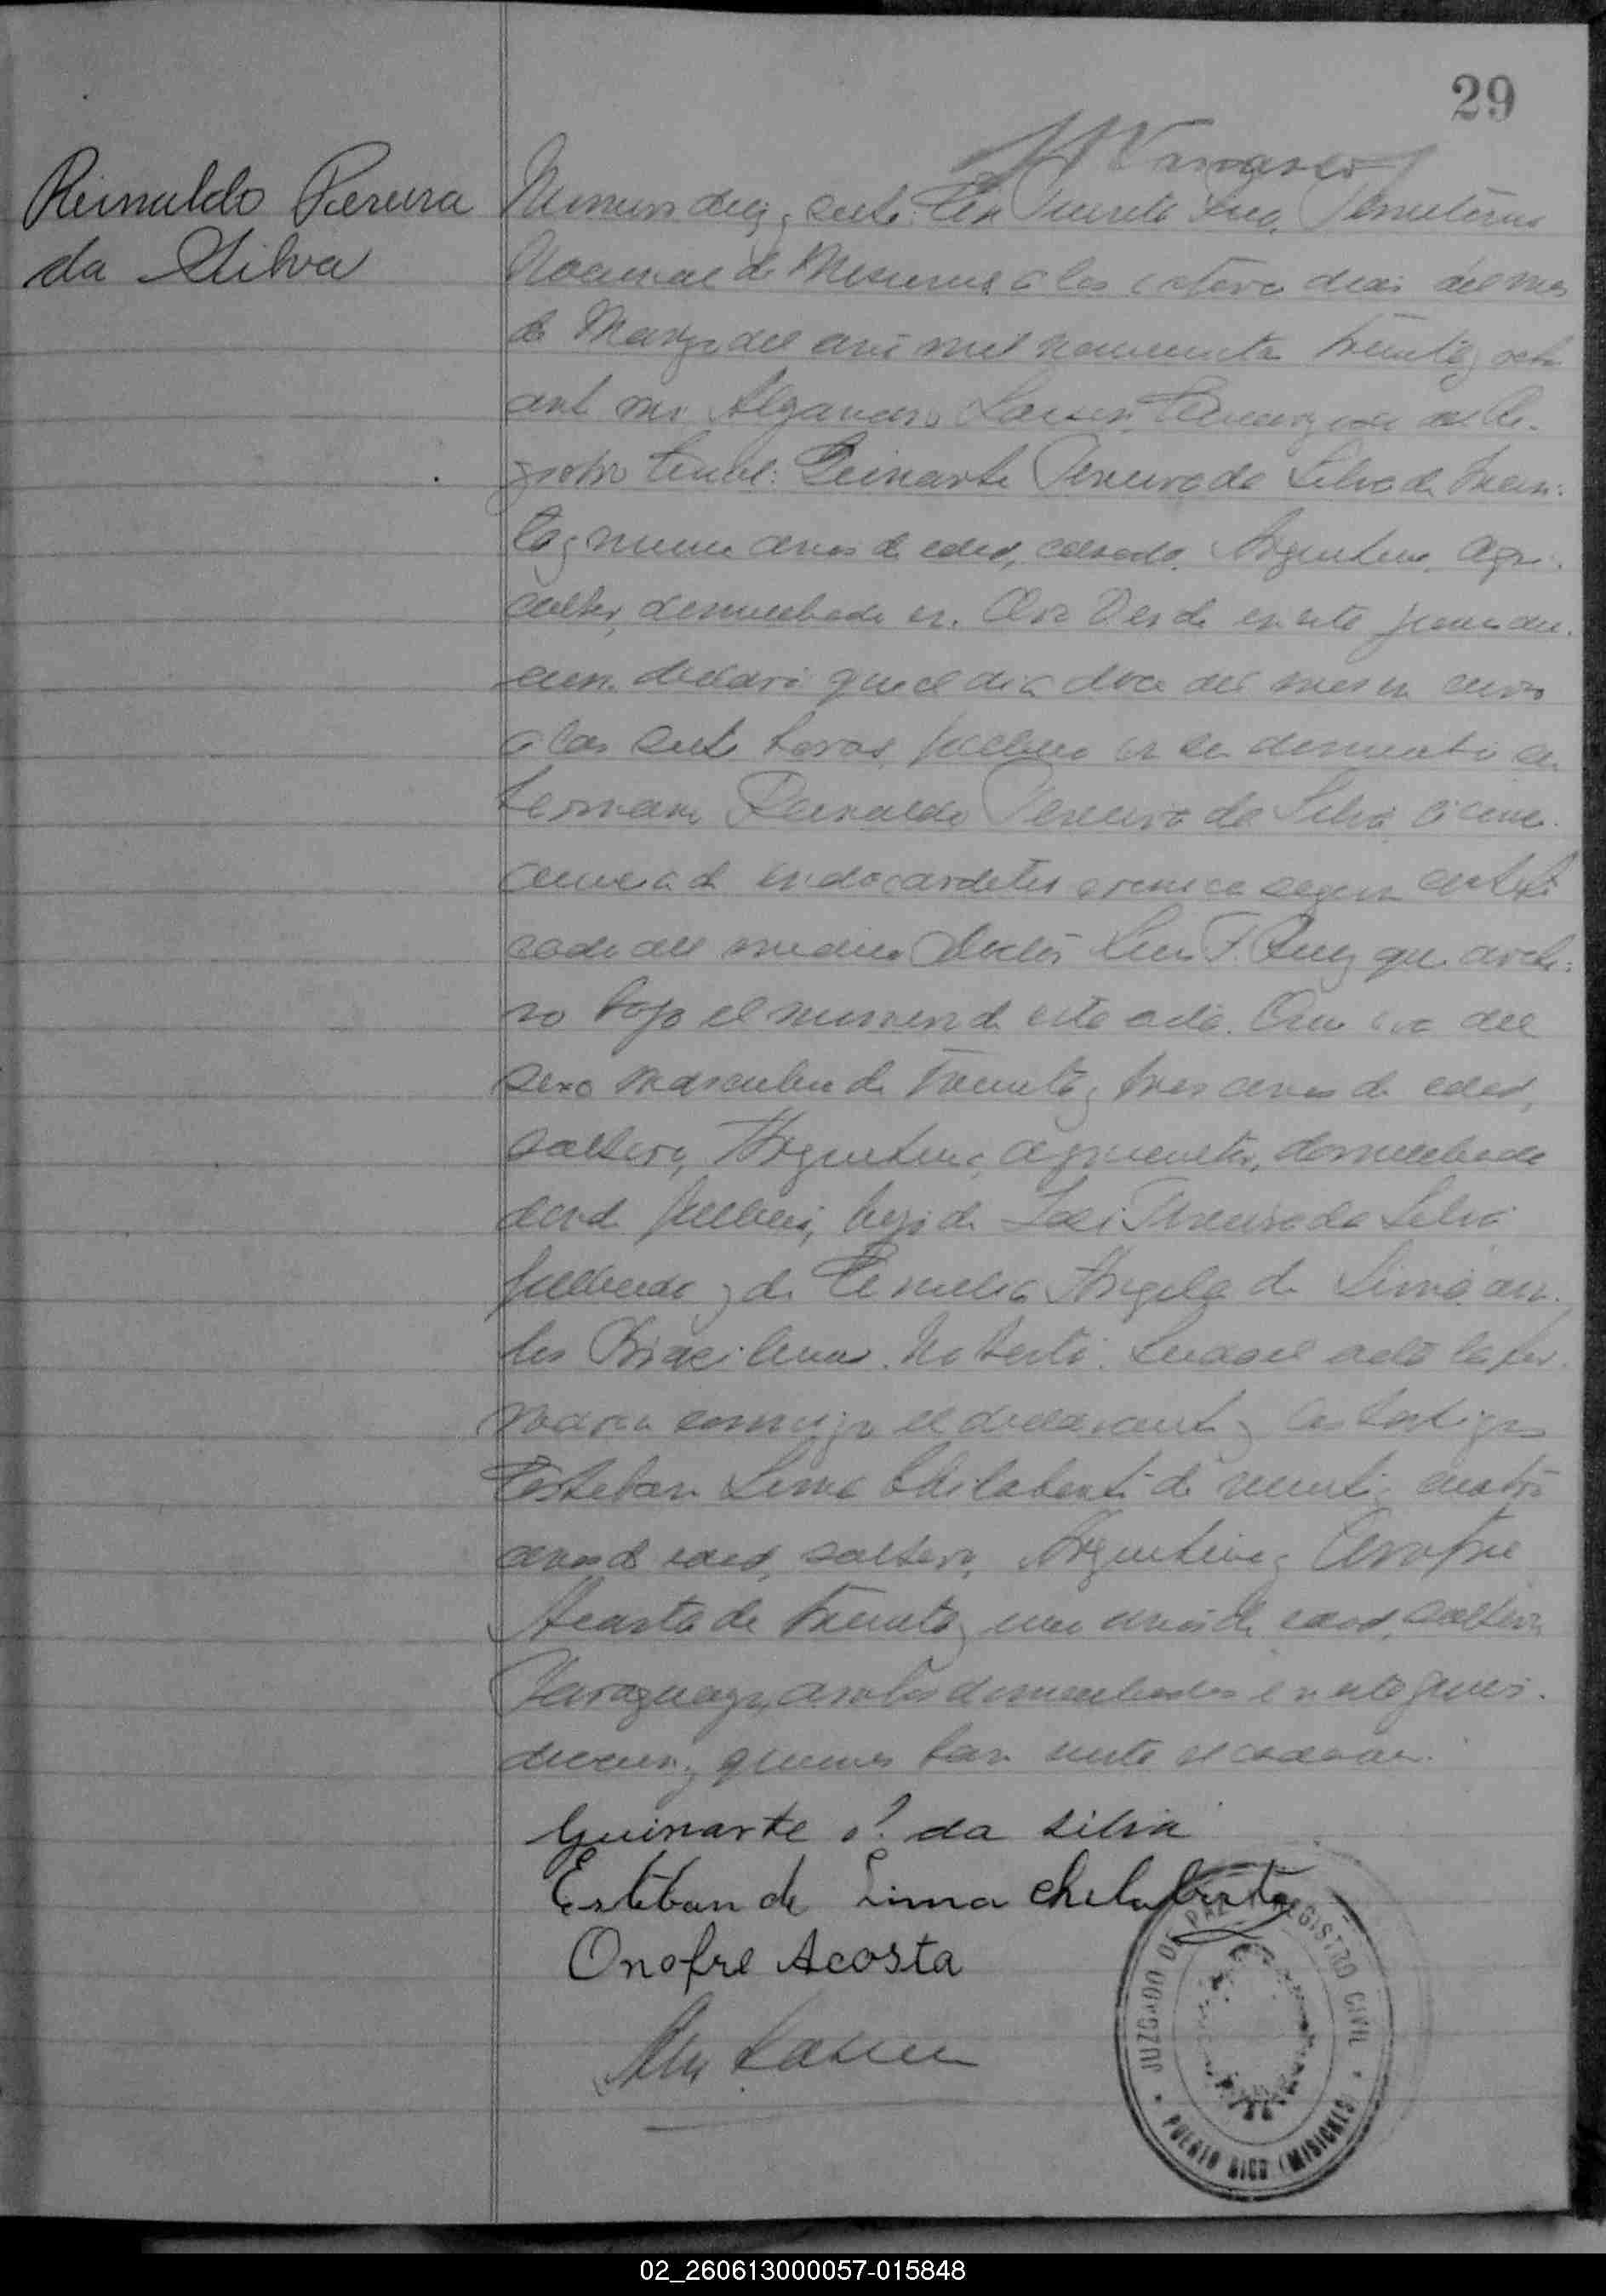 29
Reinaldo Pereira
da Silva
Numero diez y siete: En Puerto Rico, Territorio
Nacional de Misiones, a los catorce dias del mes
de Marzo del año mil novecientos treinta y ocho
ante mi Larsen, Encargado del Re-
gistro Civil: Guinarte Pereira da Silva de trein-
ta y nueve años de edad, casado, Argentino, agri-
cultor, domiciliado en en esta jurisdic-
cion, declaró que el dia doce del mes en curso
a las siete horas, falleció en su domicilio su
hermano Reinaldo Pereira da Silva a conse-
cuencia de endocarditis cronica segun certifi-
cado del medico Doctor Luis F. que archi-
vo bajo el numero de esta acta. Que era del
sexo masculino de treinta y tres años de edad,
soltero, Argentino, agricultor, domiciliado
donde falleció, hijo de Pereira da Silva
fallecido y de Angela de Lima am-
bos Brasileros. No testó. Leida el acta la fir-
maron conmigo el declarante y los testigos
Esteban Lima Chilabert de veinte y cuatro
años de edad, soltero, Argentino y Onofre
Acosta de treinta y un años de edad, soltero
Paraguayo, ambos domiciliados en esta juris-
diccion y quienes han visto el cadaver.
Guinarte P. da Silva
Esteban de Lima Chilabert
Onofre Acosta
Larsen
JUZGADO DE PAZ Y REGISTRO CIVIL
PUERTO RICO (MISIONES)
02_260613000057-015848